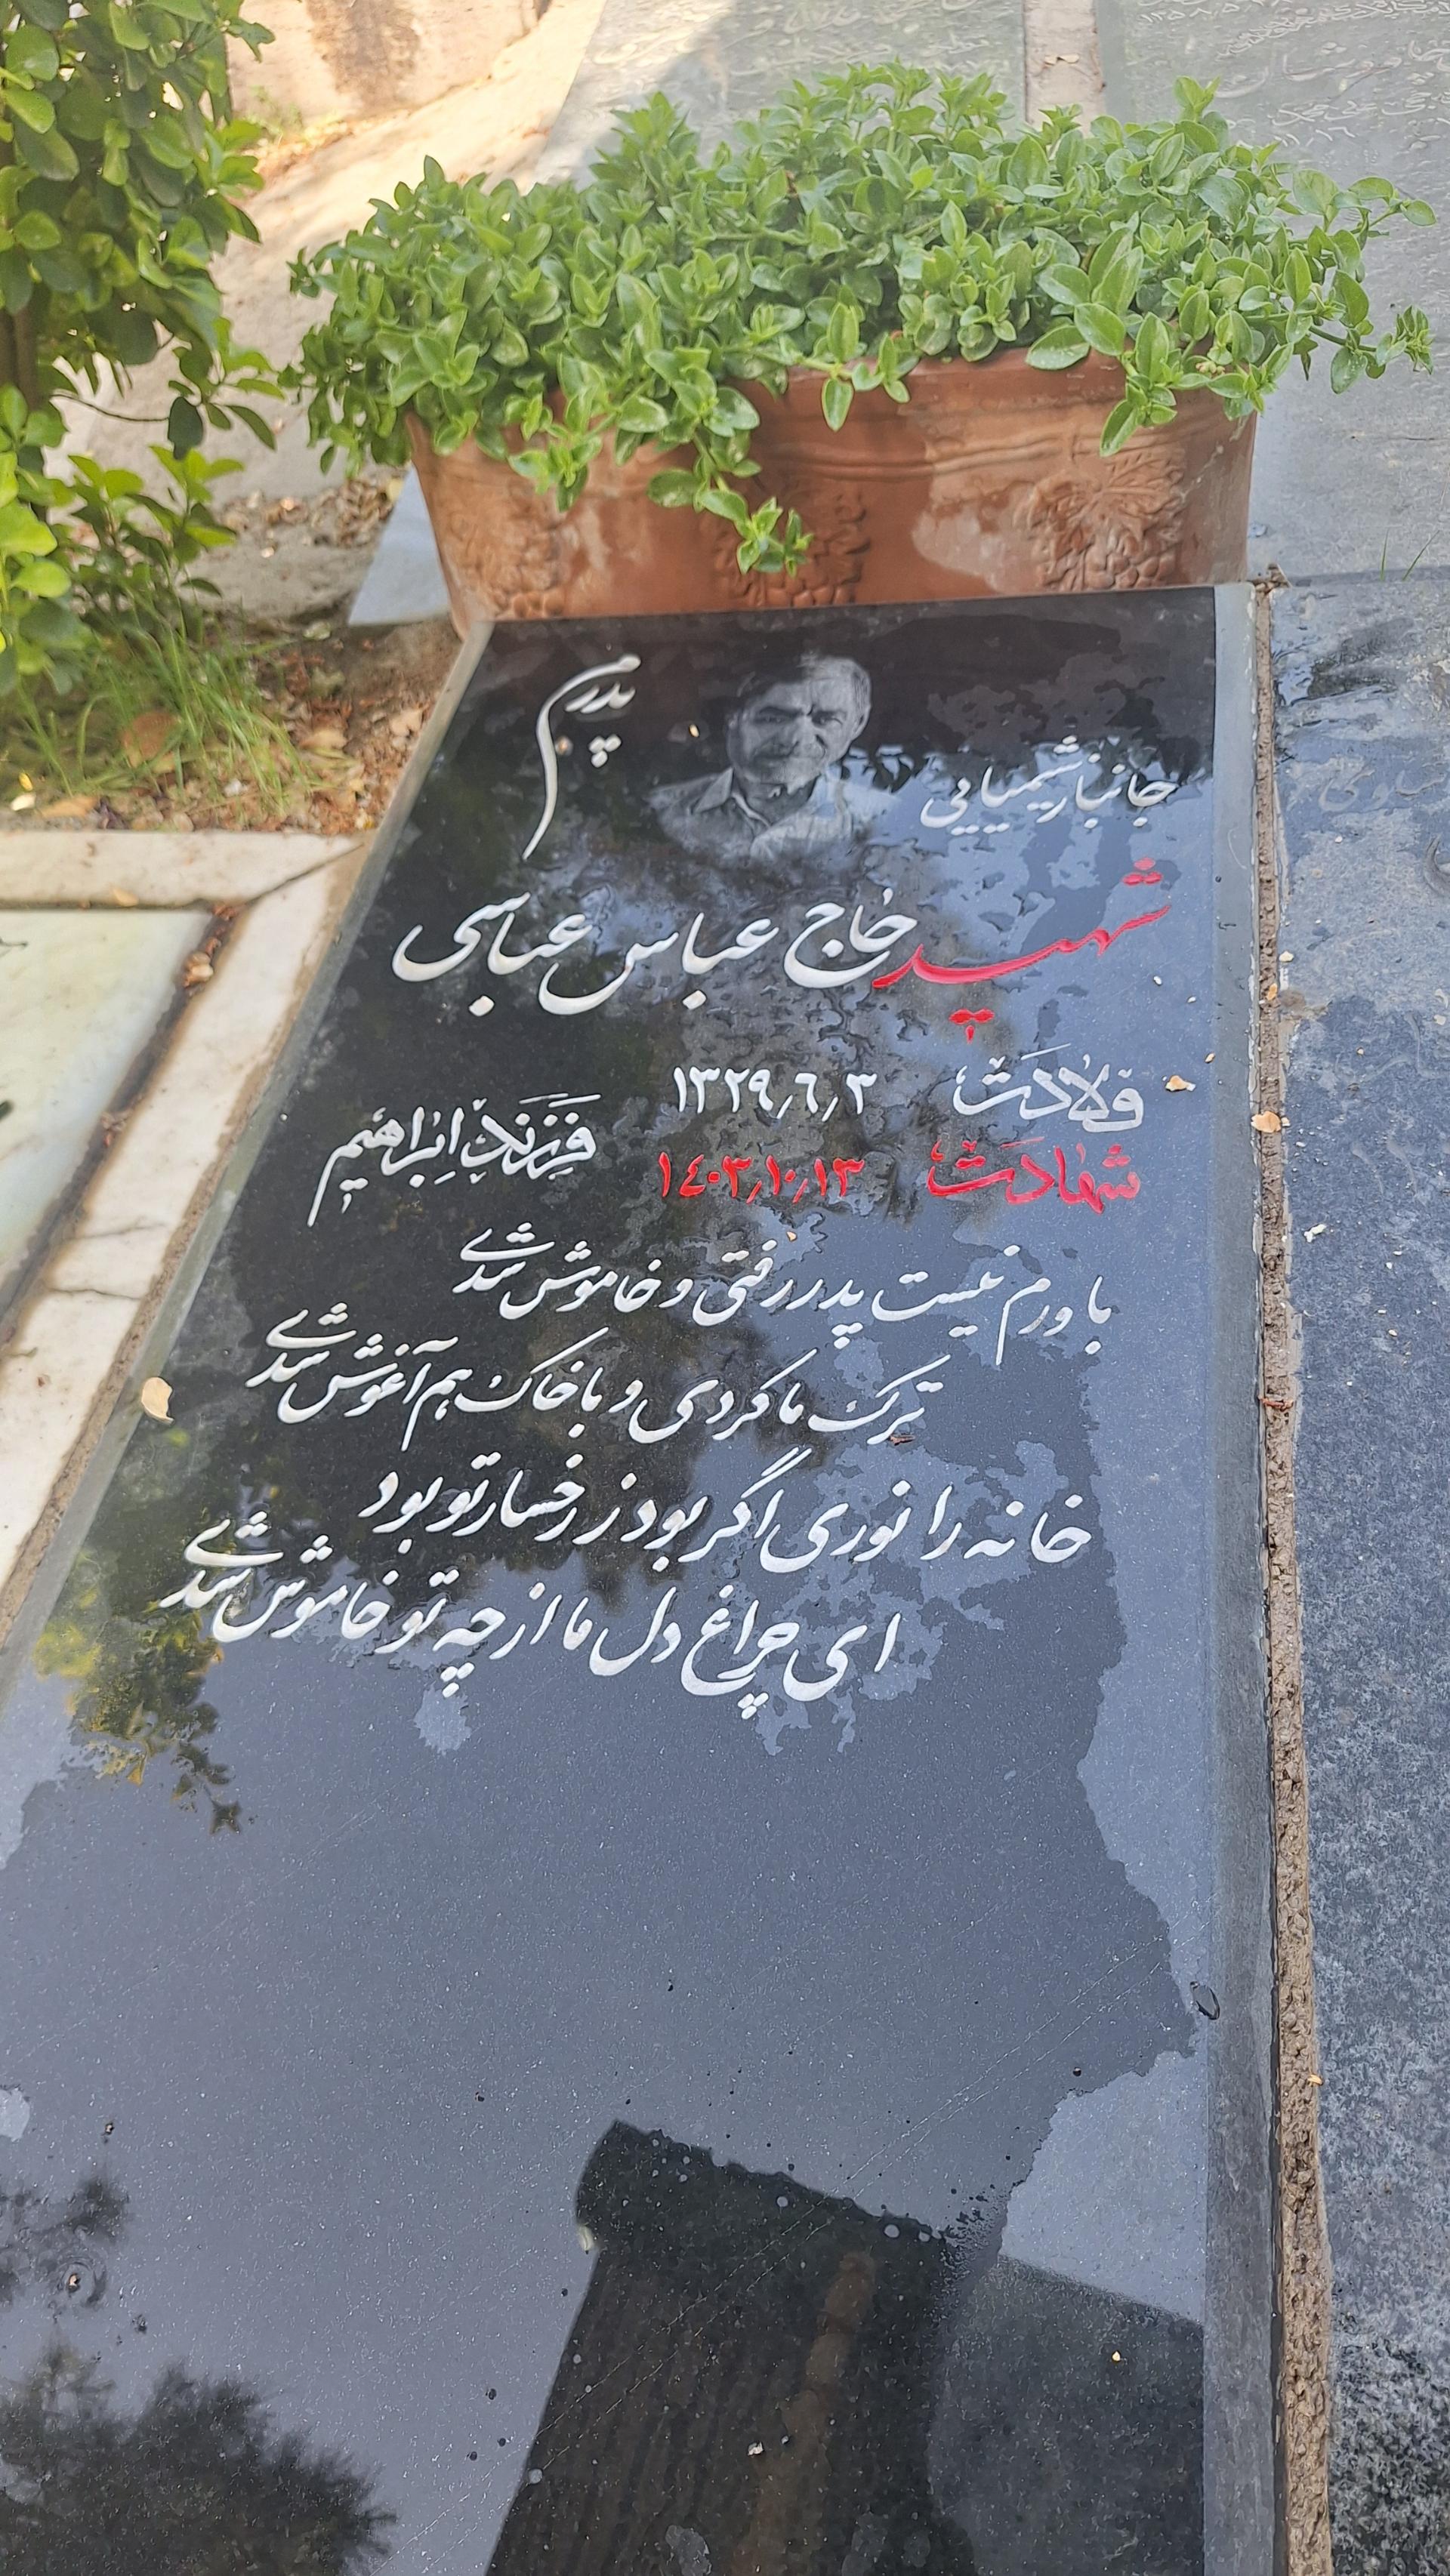 پدرم
جانباز شیمیایی
شهید حاج عباس عباسی
ولادت ۱۳۲۹٫۶٫۳
شهادت ۱۴۰۳٫۱۰٫۱۳
فرزند ابراهیم
باورم نیست پدر رفتی و خاموش شدی
ترک ما کردی و با خاک هم آغوش شدی
خانه را نوری اگر بود ز رخسار تو بود
ای چراغ دل ما از چه تو خاموش شدی